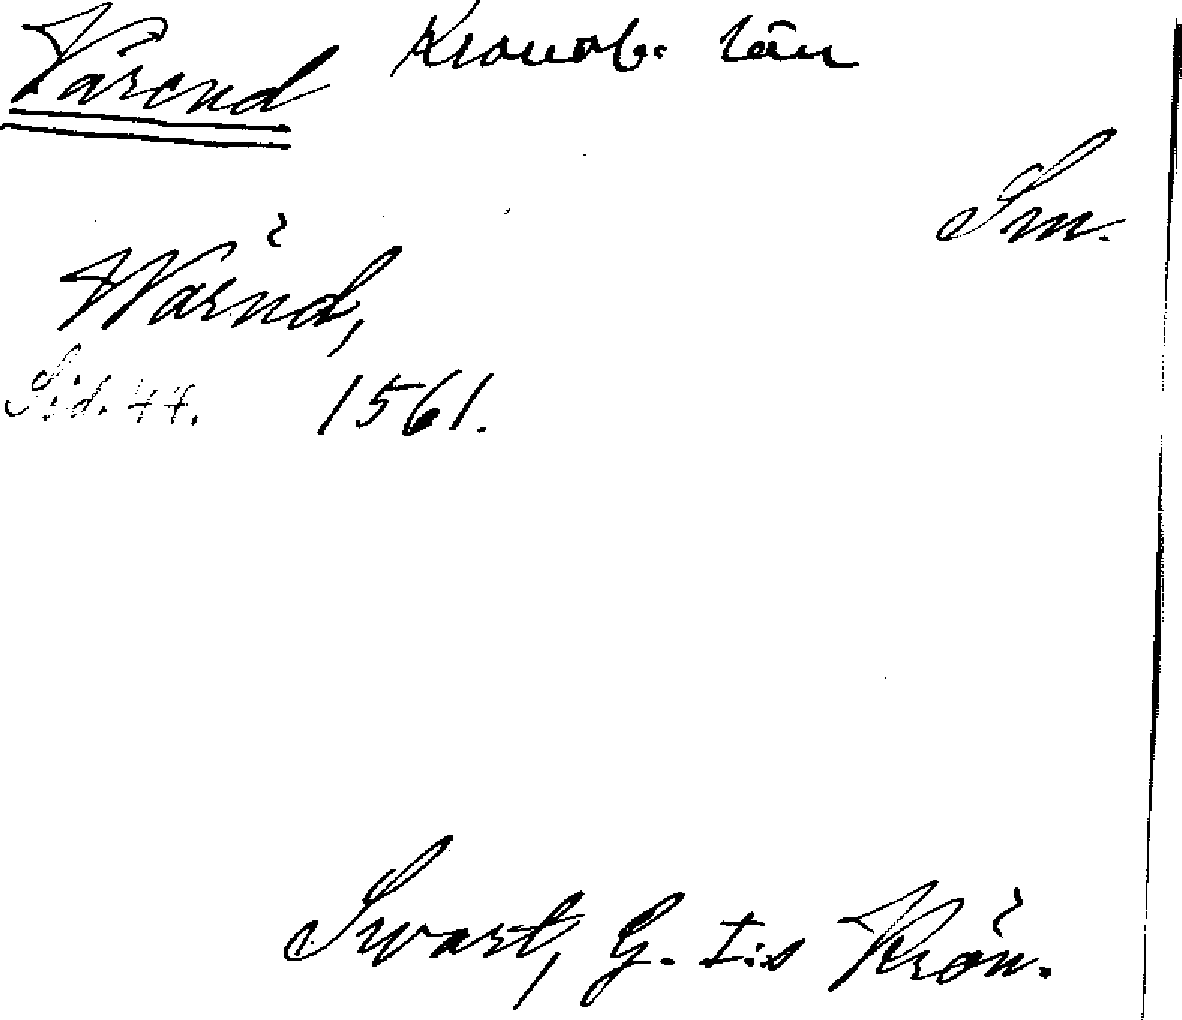 Värend Kronob. län
Sm.
Wärnd,
Sid. 44. 1561.
Swart, G. I:s Krön.